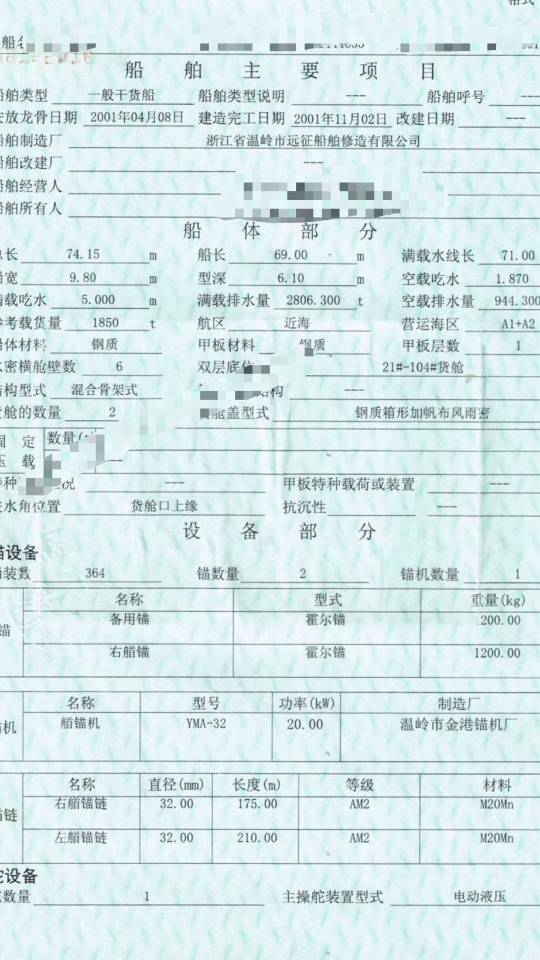 格式
船名
船舶主要项目
船舶类型 一般干货船 船舶类型说明 --- 船舶呼号 ---
安放龙骨日期 2001年04月08日 建造完工日期 2001年11月02日 改建日期 ---
船舶制造厂 浙江省温岭市远征船舶修造有限公司
船舶改建厂 ---
船舶经营人
船舶所有人
船体部分
总长 74.15 m 船长 69.00 m 满载水线长 71.00
船宽 9.80 m 型深 6.10 m 空载吃水 1.870
满载吃水 5.000 m 满载排水量 2806.300 t 空载排水量 944.300
参考载货量 1850 t 航区 近海 营运海区 A1+A2
船体材料 钢质 甲板材料 钢质 甲板层数 1
水密横舱壁数 6 双层底位 21#-104#货舱
结构型式 混合骨架式 结构 ---
货舱的数量 2 舱盖型式 钢质箱形加帆布风雨密
固定 数量(
压载 ---
特种 况 --- 甲板特种载荷或装置 ---
进水角位置 货舱口上缘 抗沉性 ---
设备部分
锚设备
舾装数 364 锚数量 2 锚机数量 1
名称 型式 重量(kg)
锚 备用锚 霍尔锚 1200.00
右艏锚 霍尔锚 1200.00
名称 型号 功率(kW) 制造厂
锚机 艏锚机 YMA-32 20.00 温岭市金港锚机厂
名称 直径(mm) 长度(m) 等级 材料
锚链 右艏锚链 32.00 175.00 AM2 M20Mn
左艏锚链 32.00 210.00 AM2 M20Mn
舵设备
舵数量 1 主操舵装置型式 电动液压